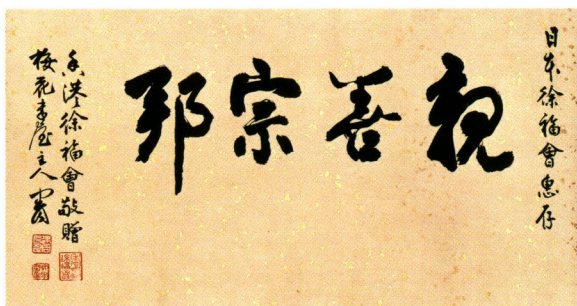 日本徐福會惠存
親善宗邦
香港徐福會敬贈
梅花書屋主人